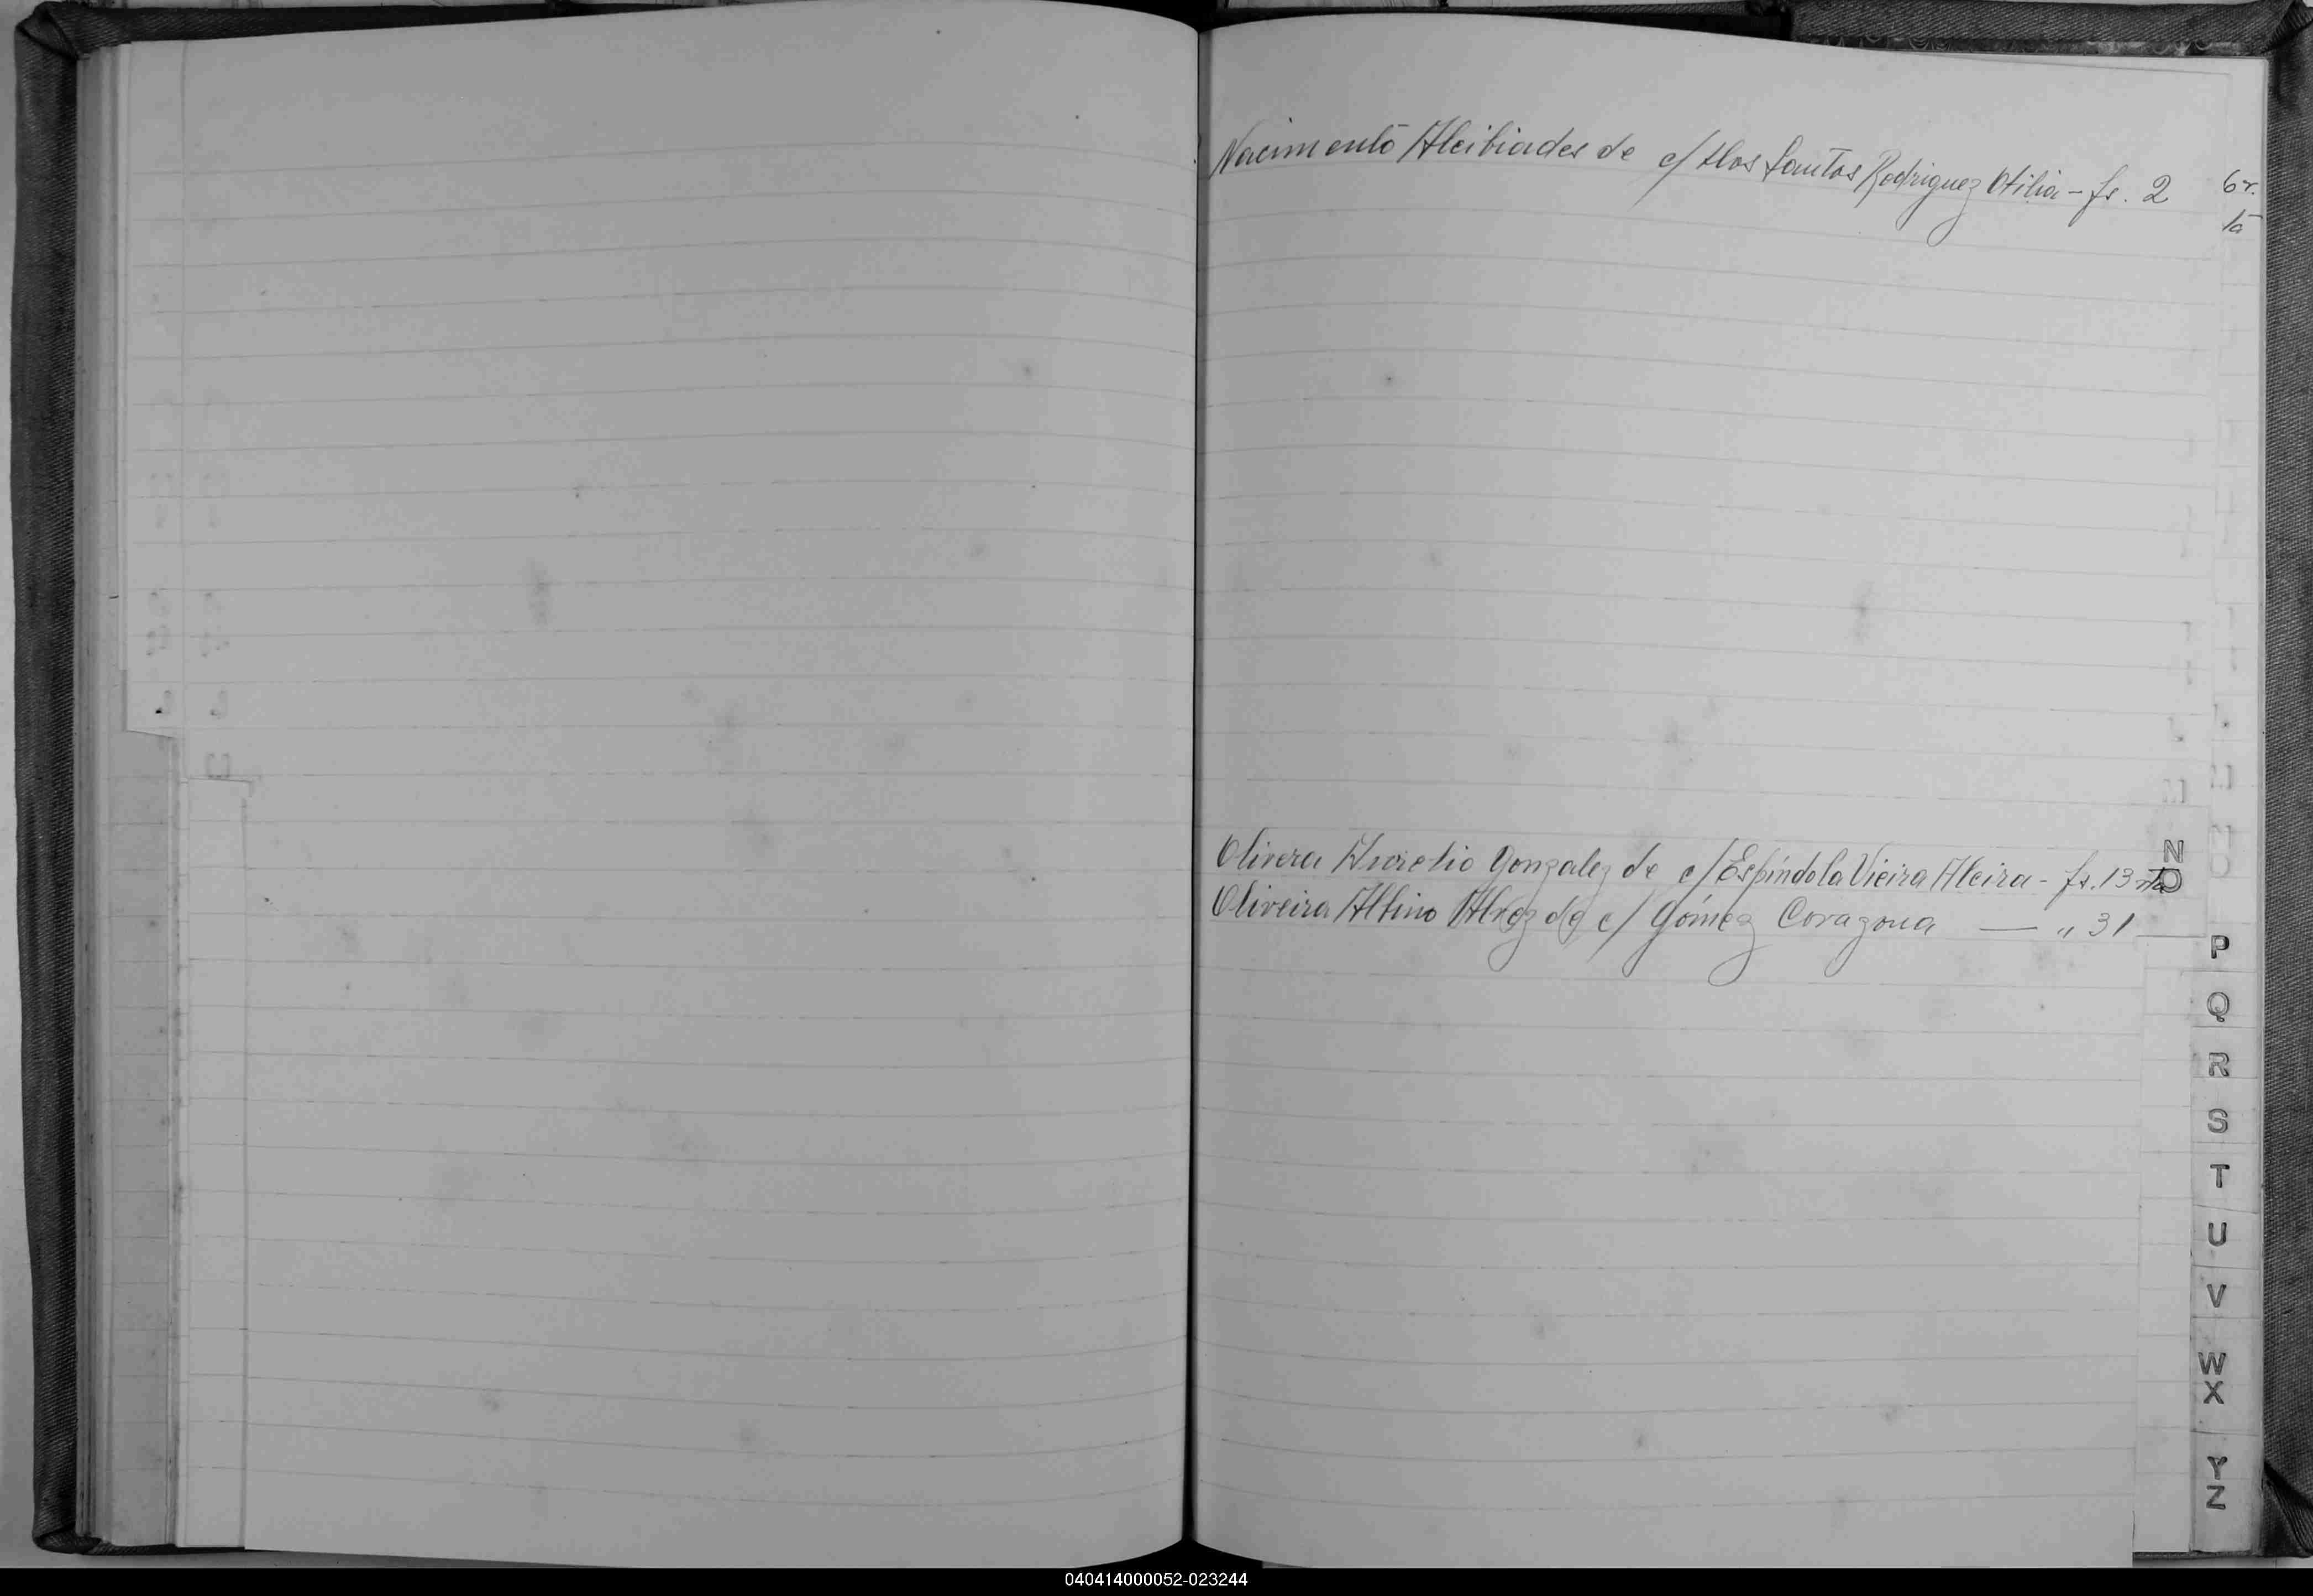 Nacimento Alcibiades de c/ dos Santos Rodriguez Otilia - fs. 2
6 r.
ta
Olivera Aurelio Gonzalez de c/ Espíndola Vieira Alcira - fs. 13 vta
Oliveira Albino Alvez de c/ Gómez Corazona — " 31
N
O
P
Q
R
S
T
U
V
W
X
Y
Z
040414000052-023244